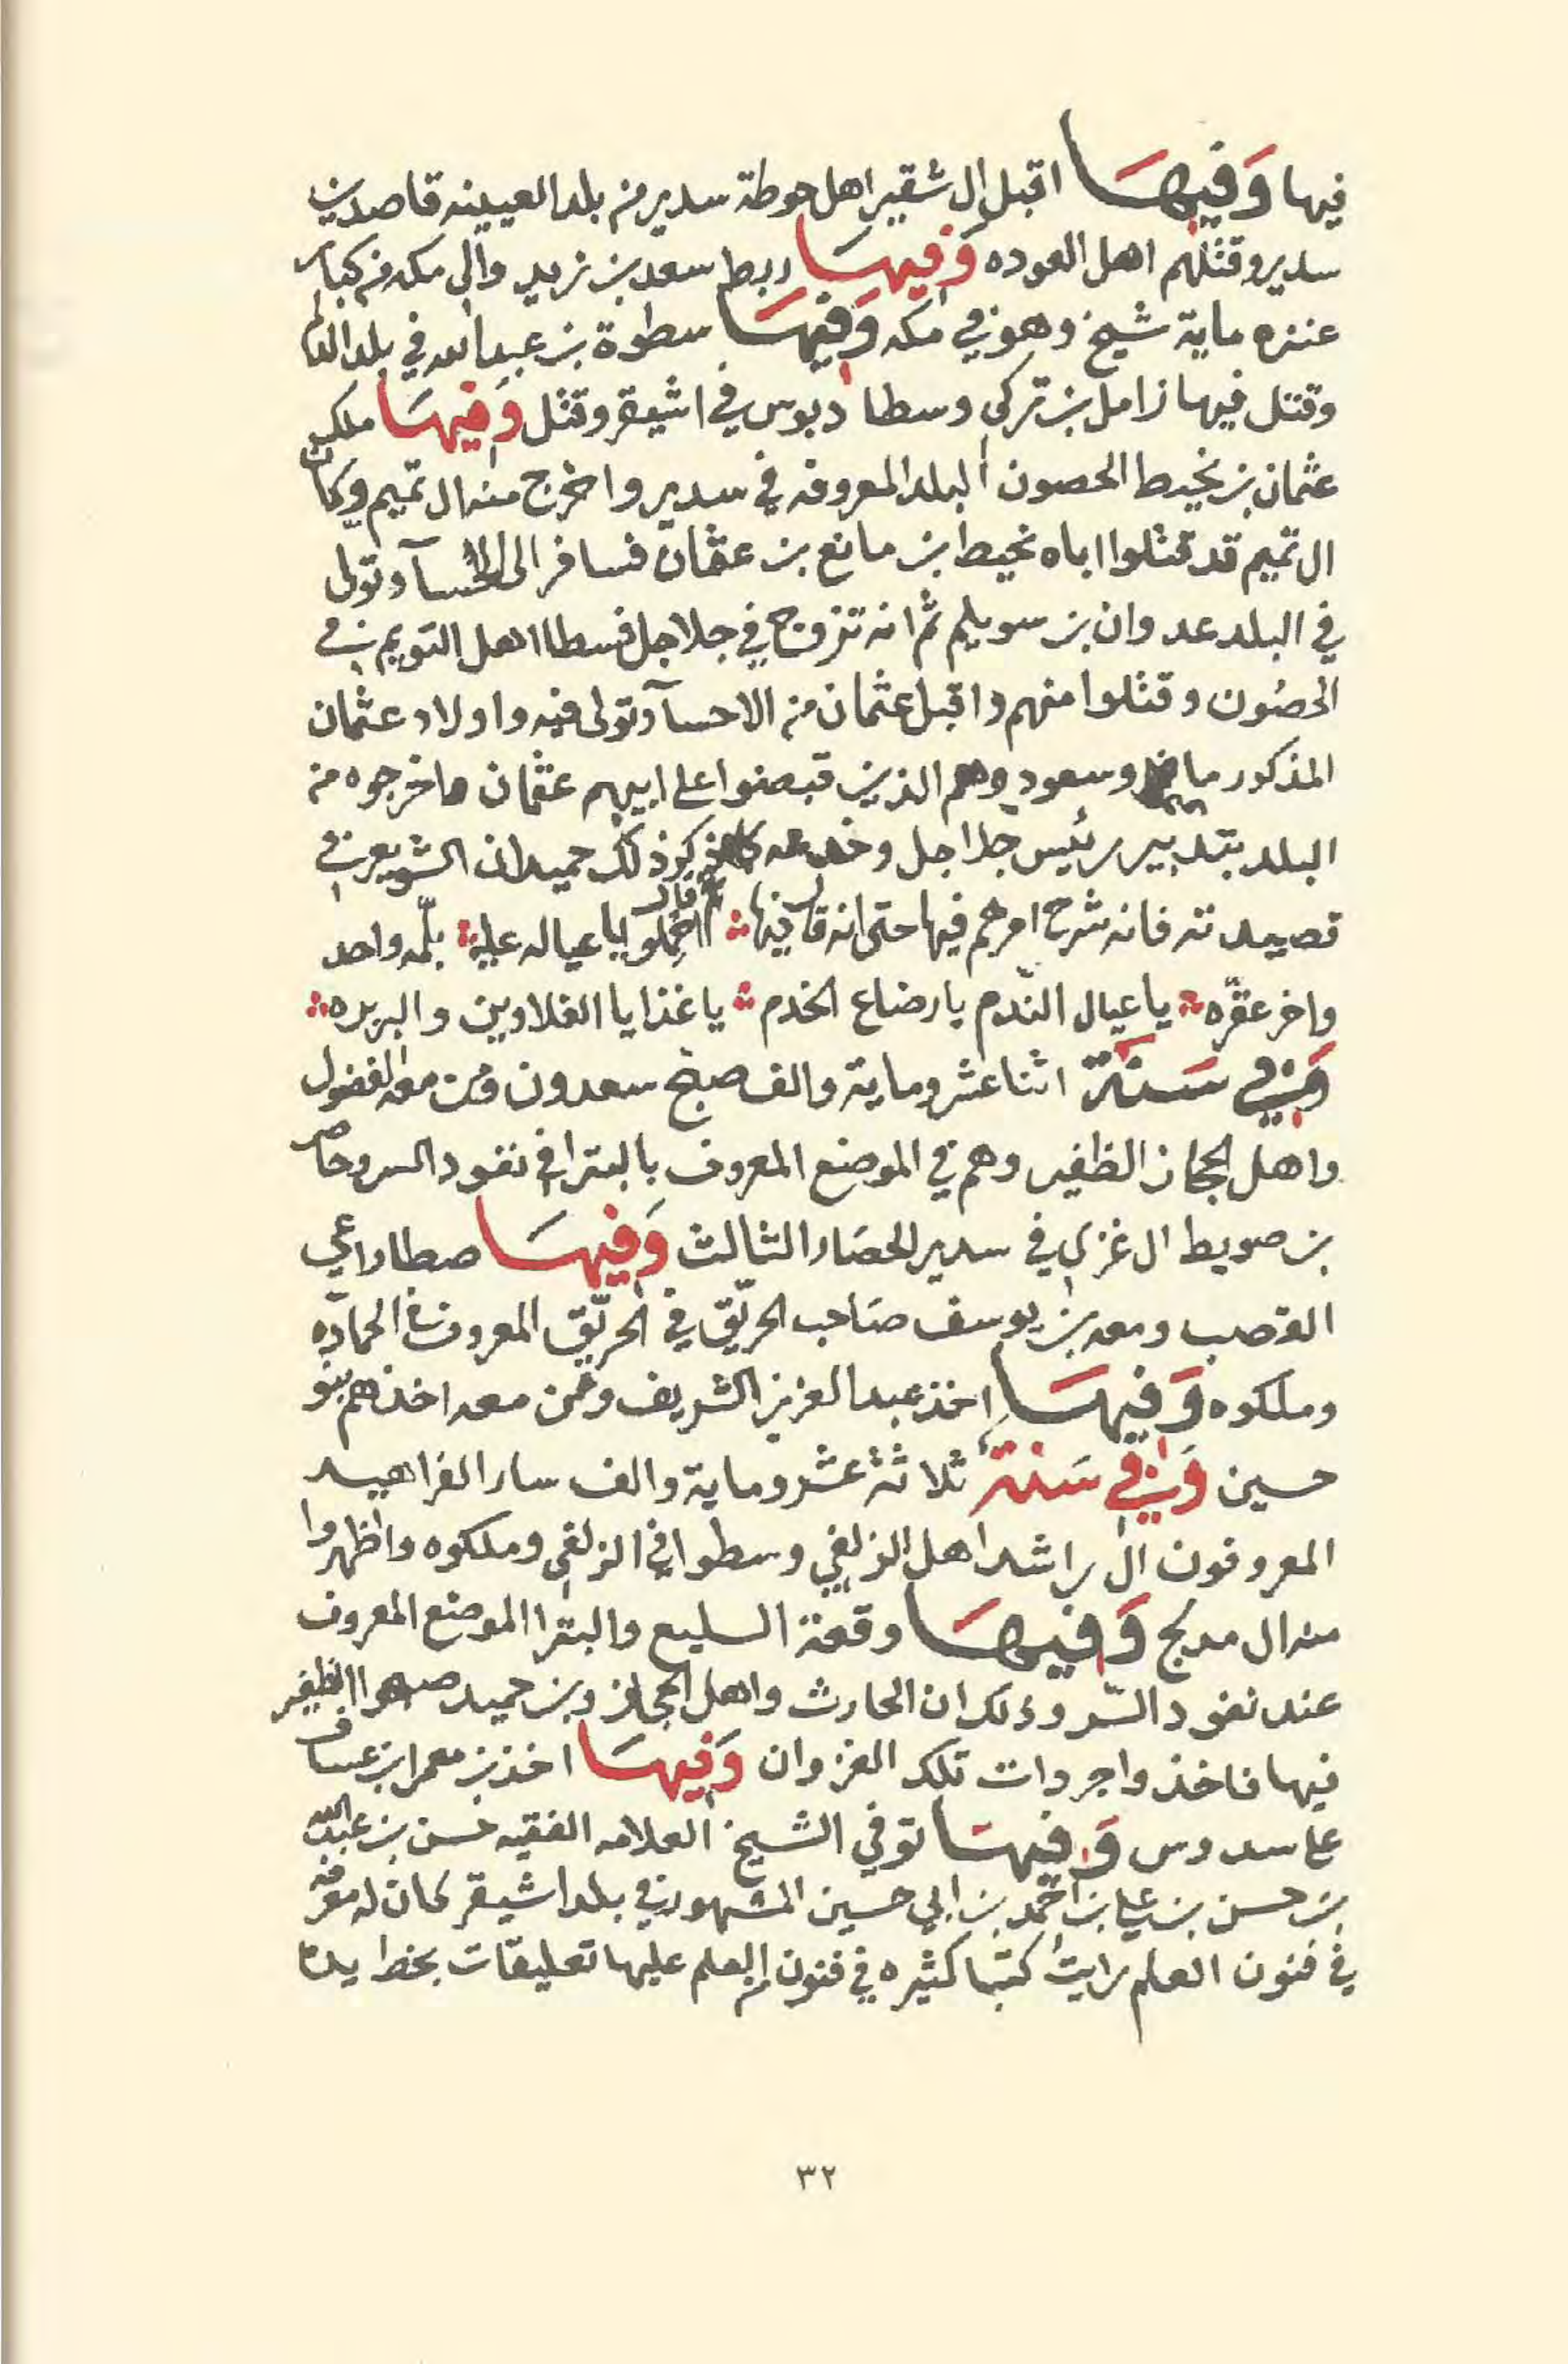 فيها وَفِيهَا اقبل ال شقير اهل حوطة سدير من بلد العيينه قاصدين
سدير وقتلهم اهل العوده وَفِيهَا ربط سعد بن زيد والي مكه من كبار
عنزه ماية شيخ وهو في مكه وَفِيهَا سطوة بن عبدالله في بلد الدلم
وقتل فيها زامل بن تركي وسطا دبوس في اشيقر وقتل وَفِيهَا ملك
عثمان بن نحيط الحصون البلد المعروفه في سدير واخرج منه ال تميم وكان
ال تميم قد قتلوا اباه نحيط ابن مانع بن عثمان فسافر الى الاحسآ وتولى
في البلد عدوان بن سويلم ثم انه تزوج في جلاجل فسطا اهل التويم في
الحصُون وقتلوا منهم واقبل عثمان من الاحسآ وتولى فيه واولاد عثمان
المذكور مانع وسعود وهم الذين قبضوا على ابيهم عثمان واخرجوه من
البلد بتدبير رئيس جلاجل وخدعه ذكر ذلك حميدان الشويعر في
قصيدته فانه شرح امرهم فيها حتى انه قال فيها احملوا يا عياله عليه بلّمه واحد
واخر عقّره يا عيال النّدم يا رضاع الخدم يا غذايا الغلاوين والبربره
وَفِي سَنَة اثنا عشر وماية والف صبح سعدون ومن معه الفضول
واهل الحجاز الظفير وهم في الموضع المعروف بالبترا في نفود السر وحاصر
بن صويط ال غزي في سدير الحصَار الثالث وَفِيهَا سطا راعي
القصب ومعه بن يوسف صَاحب الحريّق في الحريّق المعروف في الحمادّه
وملكوه وَفِيهَا اخذ عبدالعزيز الشريف ومن معه اخذهم بنو
حسين وَفِي سَنَة ثلاثة عشر وماية والف سار الفراهيد
المعروفون ال راشد اهل الزلفي وسطوا في الزلفي وملكوه واظهروا
منه ال مدلج وَفِيهَا وقعة السليع والبترا الموضع المعروف
عند نفود السّر وذلك ان الحارث واهل الحجاز وبن حميد صبحوا الظفير
فيها فاخذوا جردات تلك الغزوان وَفِيهَا اخذ بن معمر ابن عساف
على سدوس وَفِيهَا توفي الشيخ العلامه الفقيه حسن بن عبدالله
بن حسن بن علي بن احمد بن ابي حسين المشهور في بلد اشيقر كان له معرفه
في فنون العلم رايت كتبا كثيره في فنون العلم عليها تعليقات بخط يده
٣٢